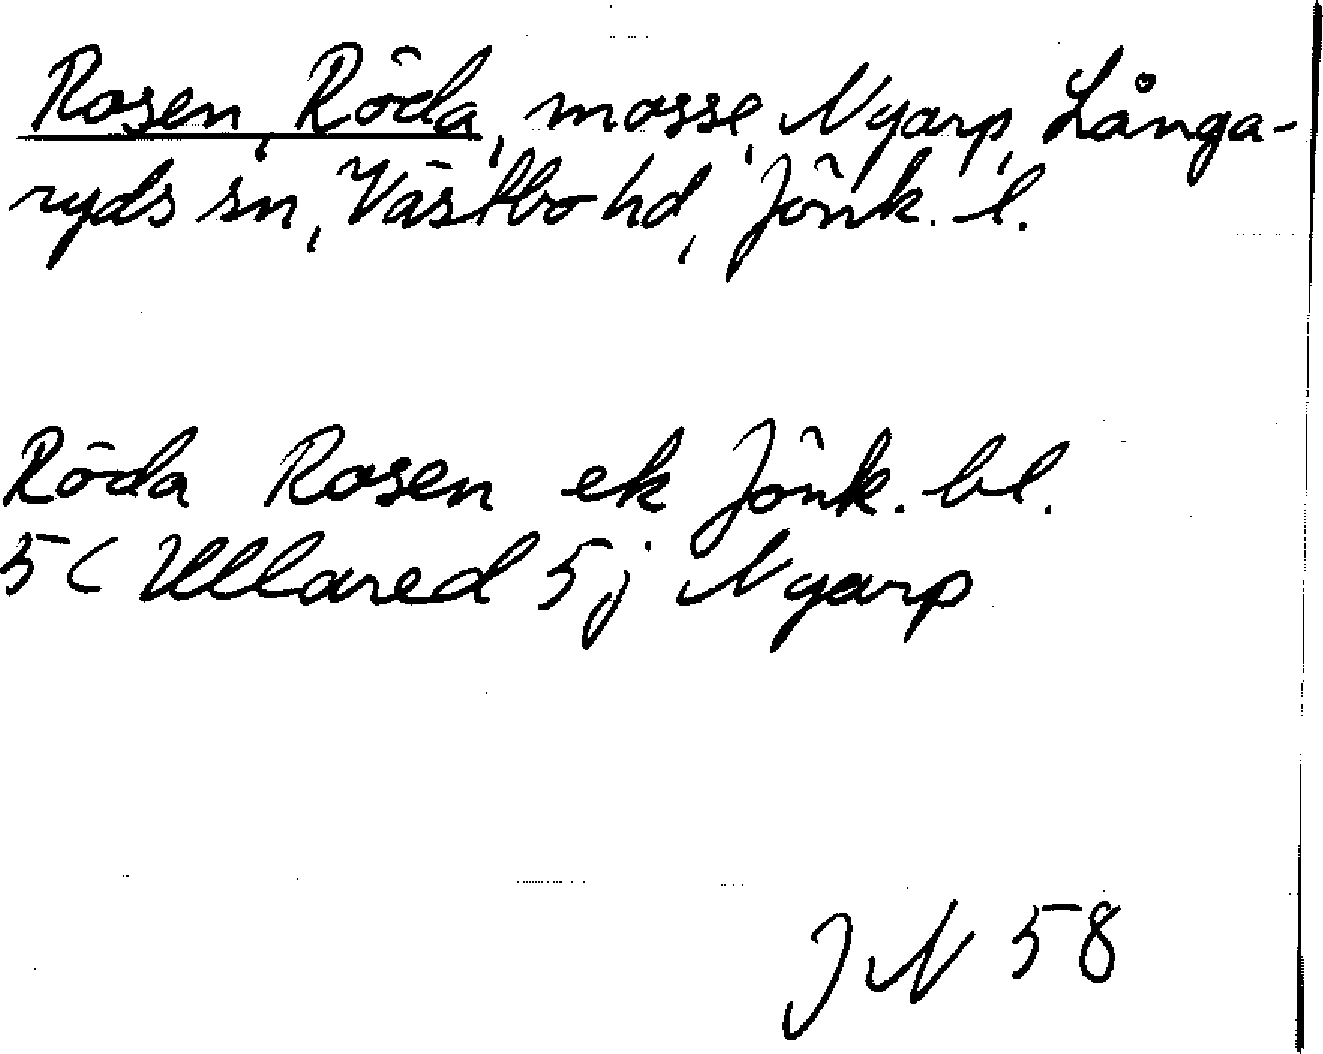 Rosen, Röda, mosse, Nyarp, Långa-
ryds sn, Västbo hd, Jönk. l.
Röda Rosen ek Jönk. bl.
5 C Ullared 5 j Nyarp
JN 58